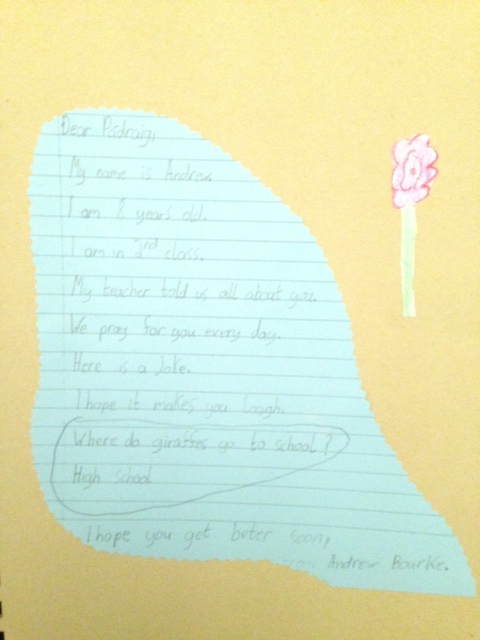 Dear Padraig,
My name is Andrew.
I am 8 years old.
I am in 2nd class.
My teacher told us all about you.
We pray for you every day.
Here is a Joke.
I hope it makes you laugh.
Where do giraffes go to school?
High school
I hope you get beter soon,
Andrew Bourke.